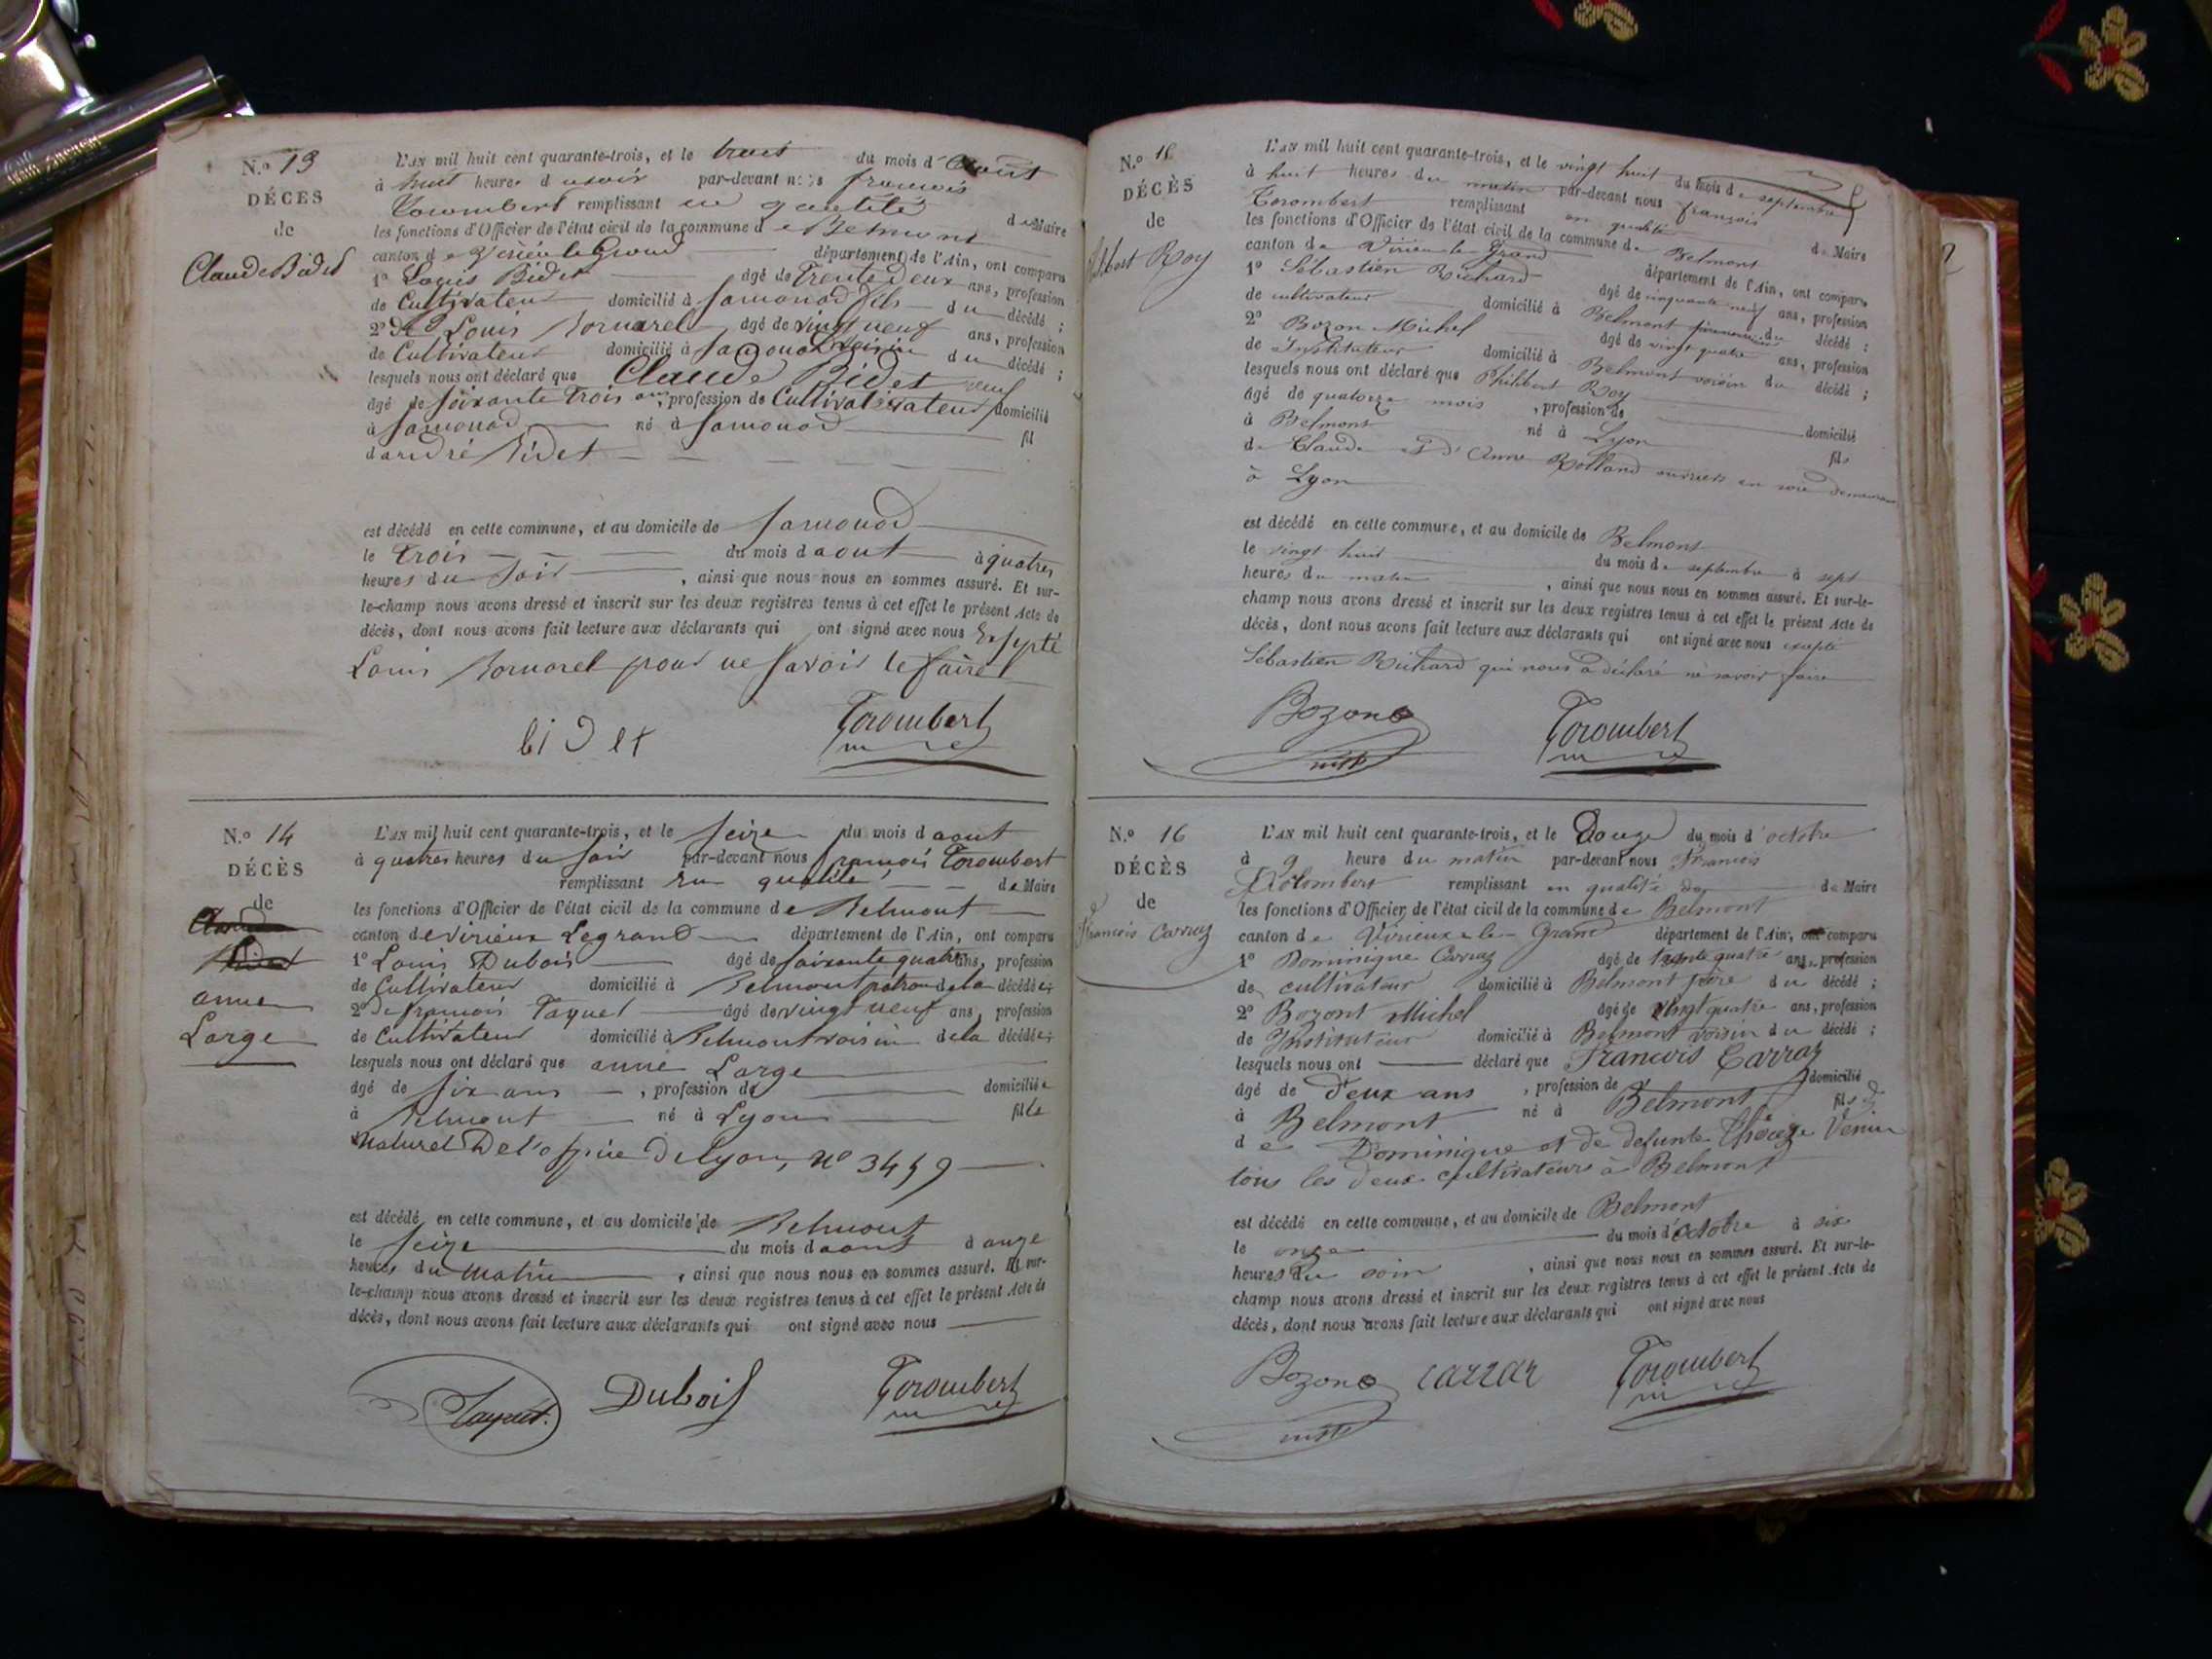 N.o 13
DÉCES
de
Claude Bidet
L'AN mil huit cent quarante-trois, et le trois du mois d'Aout
à huit heures du soir par-devant nous françois
Torombert remplissant en qualité de Maire
les fonctions d'Officier de l'état civil de la commune de Belmont
canton de Virieu le Grand département de l'Ain, ont comparu
1o Louis Bidet âgé de Trente deux ans, profession
de Cultivateur domicilié à Samonod fils du décédé ;
2o Louis Bornarel âgé de vingt neuf ans, profession
de Cultivateur domicilié à Samonod Voisin du décédé ;
lesquels nous ont déclaré que Claude Bidet veuf
âgé de soixante trois ans, profession de Cultivateur domicilié
à Samonod né à Samonod fil
d'andré Bidet
est décédé en cette commune, et au domicile de Samonod
le trois du mois d aout à quatres
heures du Soir , ainsi que nous nous en sommes assuré. Et sur-
le-champ nous avons dressé et inscrit sur les deux registres tenus à cet effet le présent Acte de
décès, dont nous avons fait lecture aux déclarants qui ont signé avec nous Exsepté
Louis Bornarel pour ne savoir le faire
bidet Torombert
N.o 14
DÉCÈS
de
anne
Large
L'AN mil huit cent quarante-trois, et le seize du mois d aout
à quatres heures du soir par-devant nous françois Torombert
remplissant en qualité de Maire
les fonctions d'Officier de l'état civil de la commune de Belmont
canton de virieux Legrand département de l'Ain, ont comparu
1o Louis Dubois âgé de soixante quatre ans, profession
de Cultivateur domicilié à Belmont patron de la décédée ;
2o françois Taquet âgé de vingt neuf ans, profession
de Cultivateur domicilié à Belmont voisin de la décédée ;
lesquels nous ont déclaré que anne Large
âgé de six ans , profession de domiciliée
à Belmont né à Lyon fille
Naturel De l'ospice De lyon, No 3459
est décédé en cette commune, et au domicile de Belmont
le seize du mois d aout à onze
heures du matin , ainsi que nous nous en sommes assuré. Et sur-
le-champ nous avons dressé et inscrit sur les deux registres tenus à cet effet le présent Acte de
décès, dont nous avons fait lecture aux déclarants qui ont signé avec nous
Taquet. Dubois Torombert
N.o
DÉCÈS
de
Roy
L'AN mil huit cent quarante-trois, et le vingt huit du mois de septembre
à huit heures du matin par-devant nous françois
Torombert remplissant en qualité de Maire
les fonctions d'Officier de l'état civil de la commune de Belmont
canton de Virieu le Grand département de l'Ain, ont comparu
1o Sébastien Richard âgé de cinquante neuf ans, profession
de cultivateur domicilié à Belmont du décédé ;
2o Bozon Michel âgé de vingt quatre ans, profession
de Instituteur domicilié à Belmont voisin du décédé ;
lesquels nous ont déclaré que Philibert Roy
âgé de quatorze mois , profession de domicilié
à Belmont né à Lyon fils
de Claude et d'Anne Rolland ouvriers en soie demeurant
à Lyon
est décédé en cette commune, et au domicile de Belmont
le vingt huit du mois de septembre à sept
heures du matin , ainsi que nous nous en sommes assuré. Et sur-le-
champ nous avons dressé et inscrit sur les deux registres tenus à cet effet le présent Acte de
décès, dont nous avons fait lecture aux déclarants qui ont signé avec nous excepté
Sébastien Richard qui nous a déclaré ne savoir faire
Bozon Torombert
inst
N.o 16
DÉCÈS
de
Francois Carraz
L'AN mil huit cent quarante-trois, et le Douze du mois d'octobre
à 9 heure du matin par-devant nous Francois
Torombert remplissant en qualité de de Maire
les fonctions d'Officier de l'état civil de la commune de Belmont
canton de Virieux-le-Grand département de l'Ain, ont comparu
1o Dominique Carraz âgé de trente quatre ans, profession
de cultivateur domicilié à Belmont père du décédé ;
2o Bozont Michel âgé de vingt quatre ans, profession
de Instituteur domicilié à Belmont voisin du décédé ;
lesquels nous ont déclaré que Francois Carraz
âgé de Deux ans , profession de domicilié
à Belmont né à Belmont fils
de Dominique et de defunte Venin
tous les deux cultivateurs à Belmont
est décédé en cette commune, et au domicile de Belmont
le onze du mois d'octobre à six
heures du soir , ainsi que nous nous en sommes assuré. Et sur-le-
champ nous avons dressé et inscrit sur les deux registres tenus à cet effet le présent Acte de
décès, dont nous avons fait lecture aux déclarants qui ont signé avec nous
Bozon carraz Torombert
inst